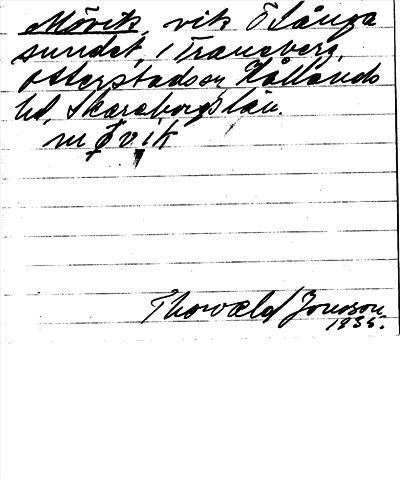 Mörvik, vik i Långa
sundet, i Traneberg,
Otterstads sn Kållands
hd, Skaraborgs län.
mǿvik
Thorvald Jonsson
1935.